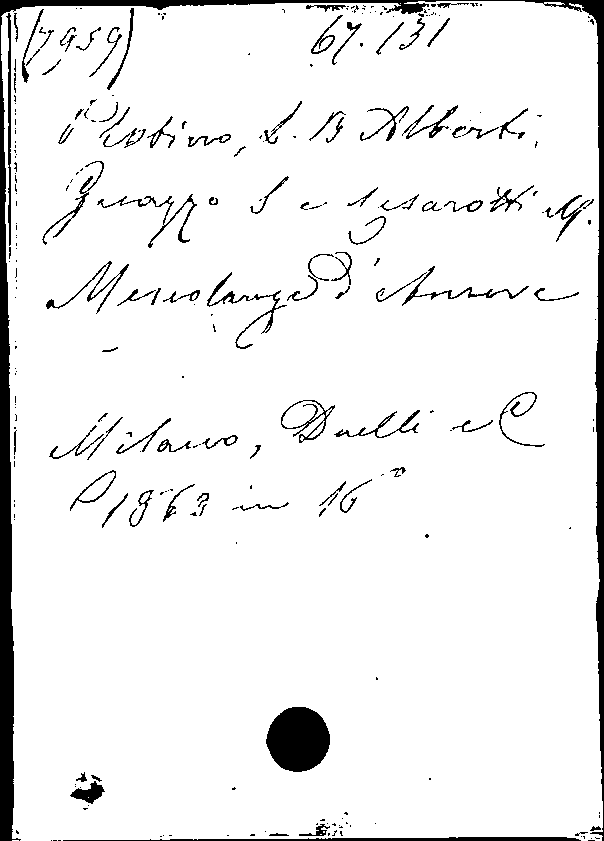 (7959) 67.131
Plotino, L. B Alberti,
Guazzo S e Cesarotti M.
Mescolanze d'Amore
Milano, Daelli e C
1863 in 16°